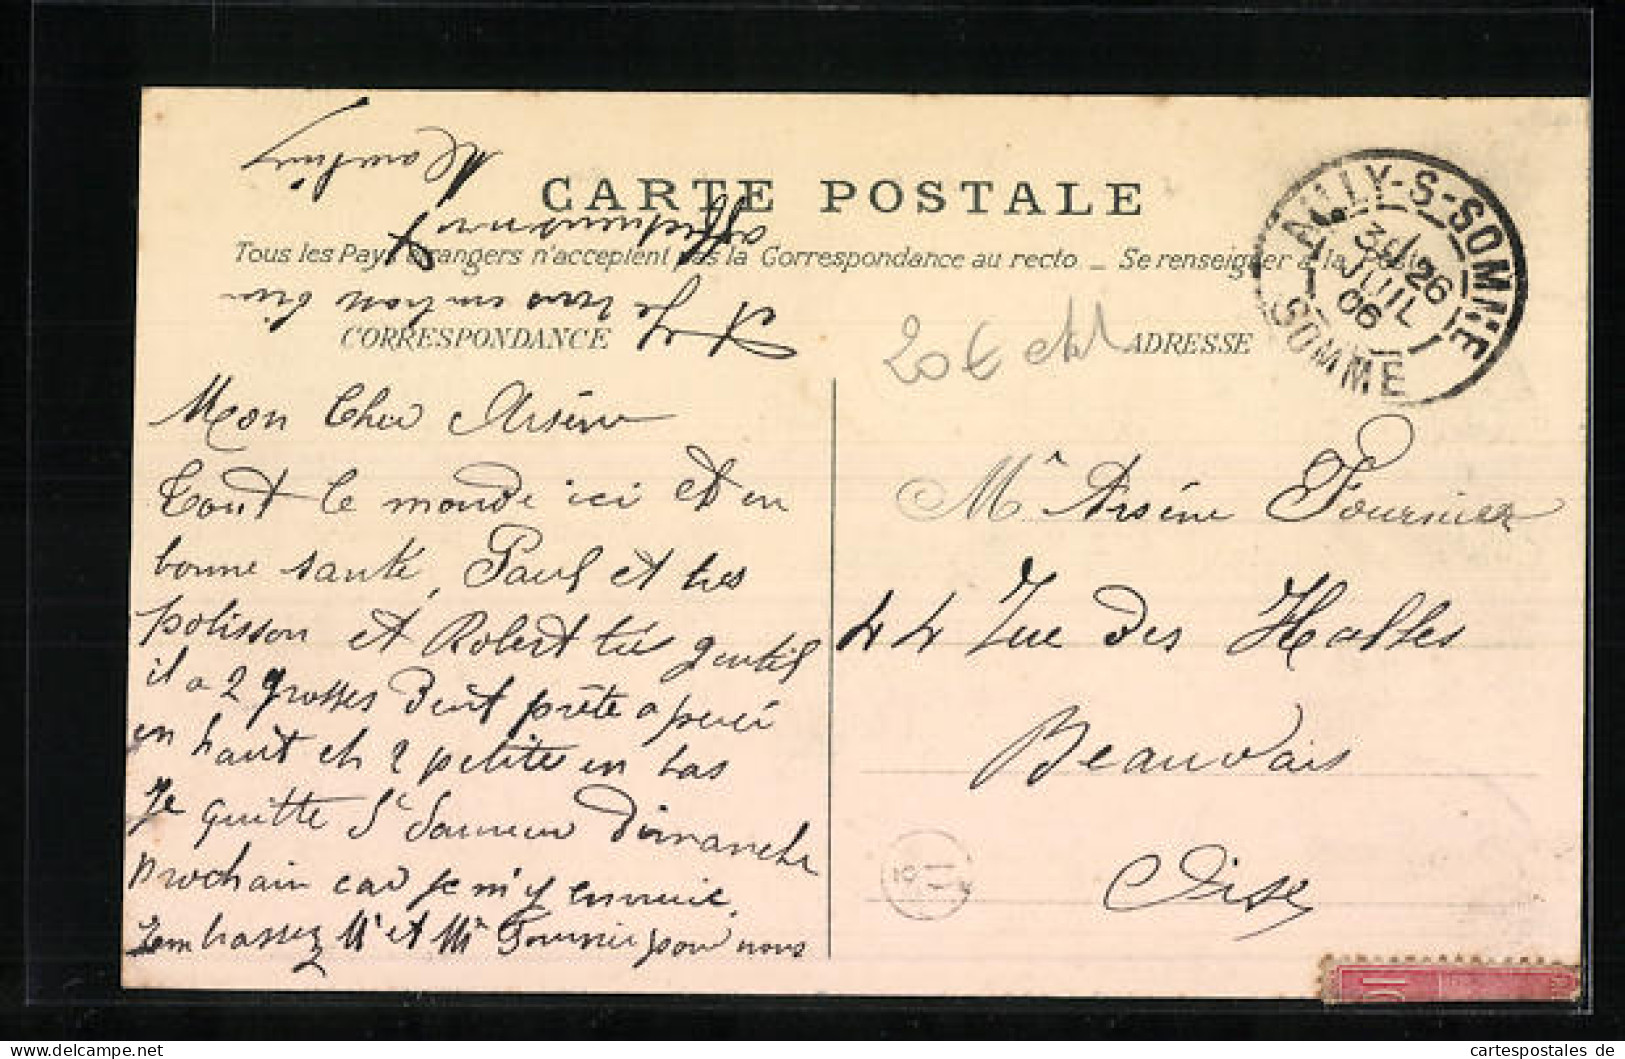 CARTE POSTALE
Tous les Pays étrangers n'acceptent pas la Correspondance au recto. _ Se renseigner à la Poste
CORRESPONDANCE
ADRESSE
AILLY-S-SOMME
3E / 26
JUIL
06
SOMME
20€
Mon Cher Arsène
Tout le monde ici et en
bonne santé, Paul et très
polisson et Robert très gentil
il a 2 grosses dent prête a percé
en haut et 2 petite en bas
Je quitte St Sauveur Dimanche
prochain car je m'y ennuie.
Embrassez Mr et Mme Fournier pour nous
et
affectueuse
Mr Arsène Fournier
44 Rue des Halles
Beauvais
Oise
cartespostales de